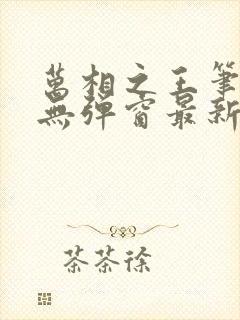 萬相之王筆
無彈窗最新
茶茶徐